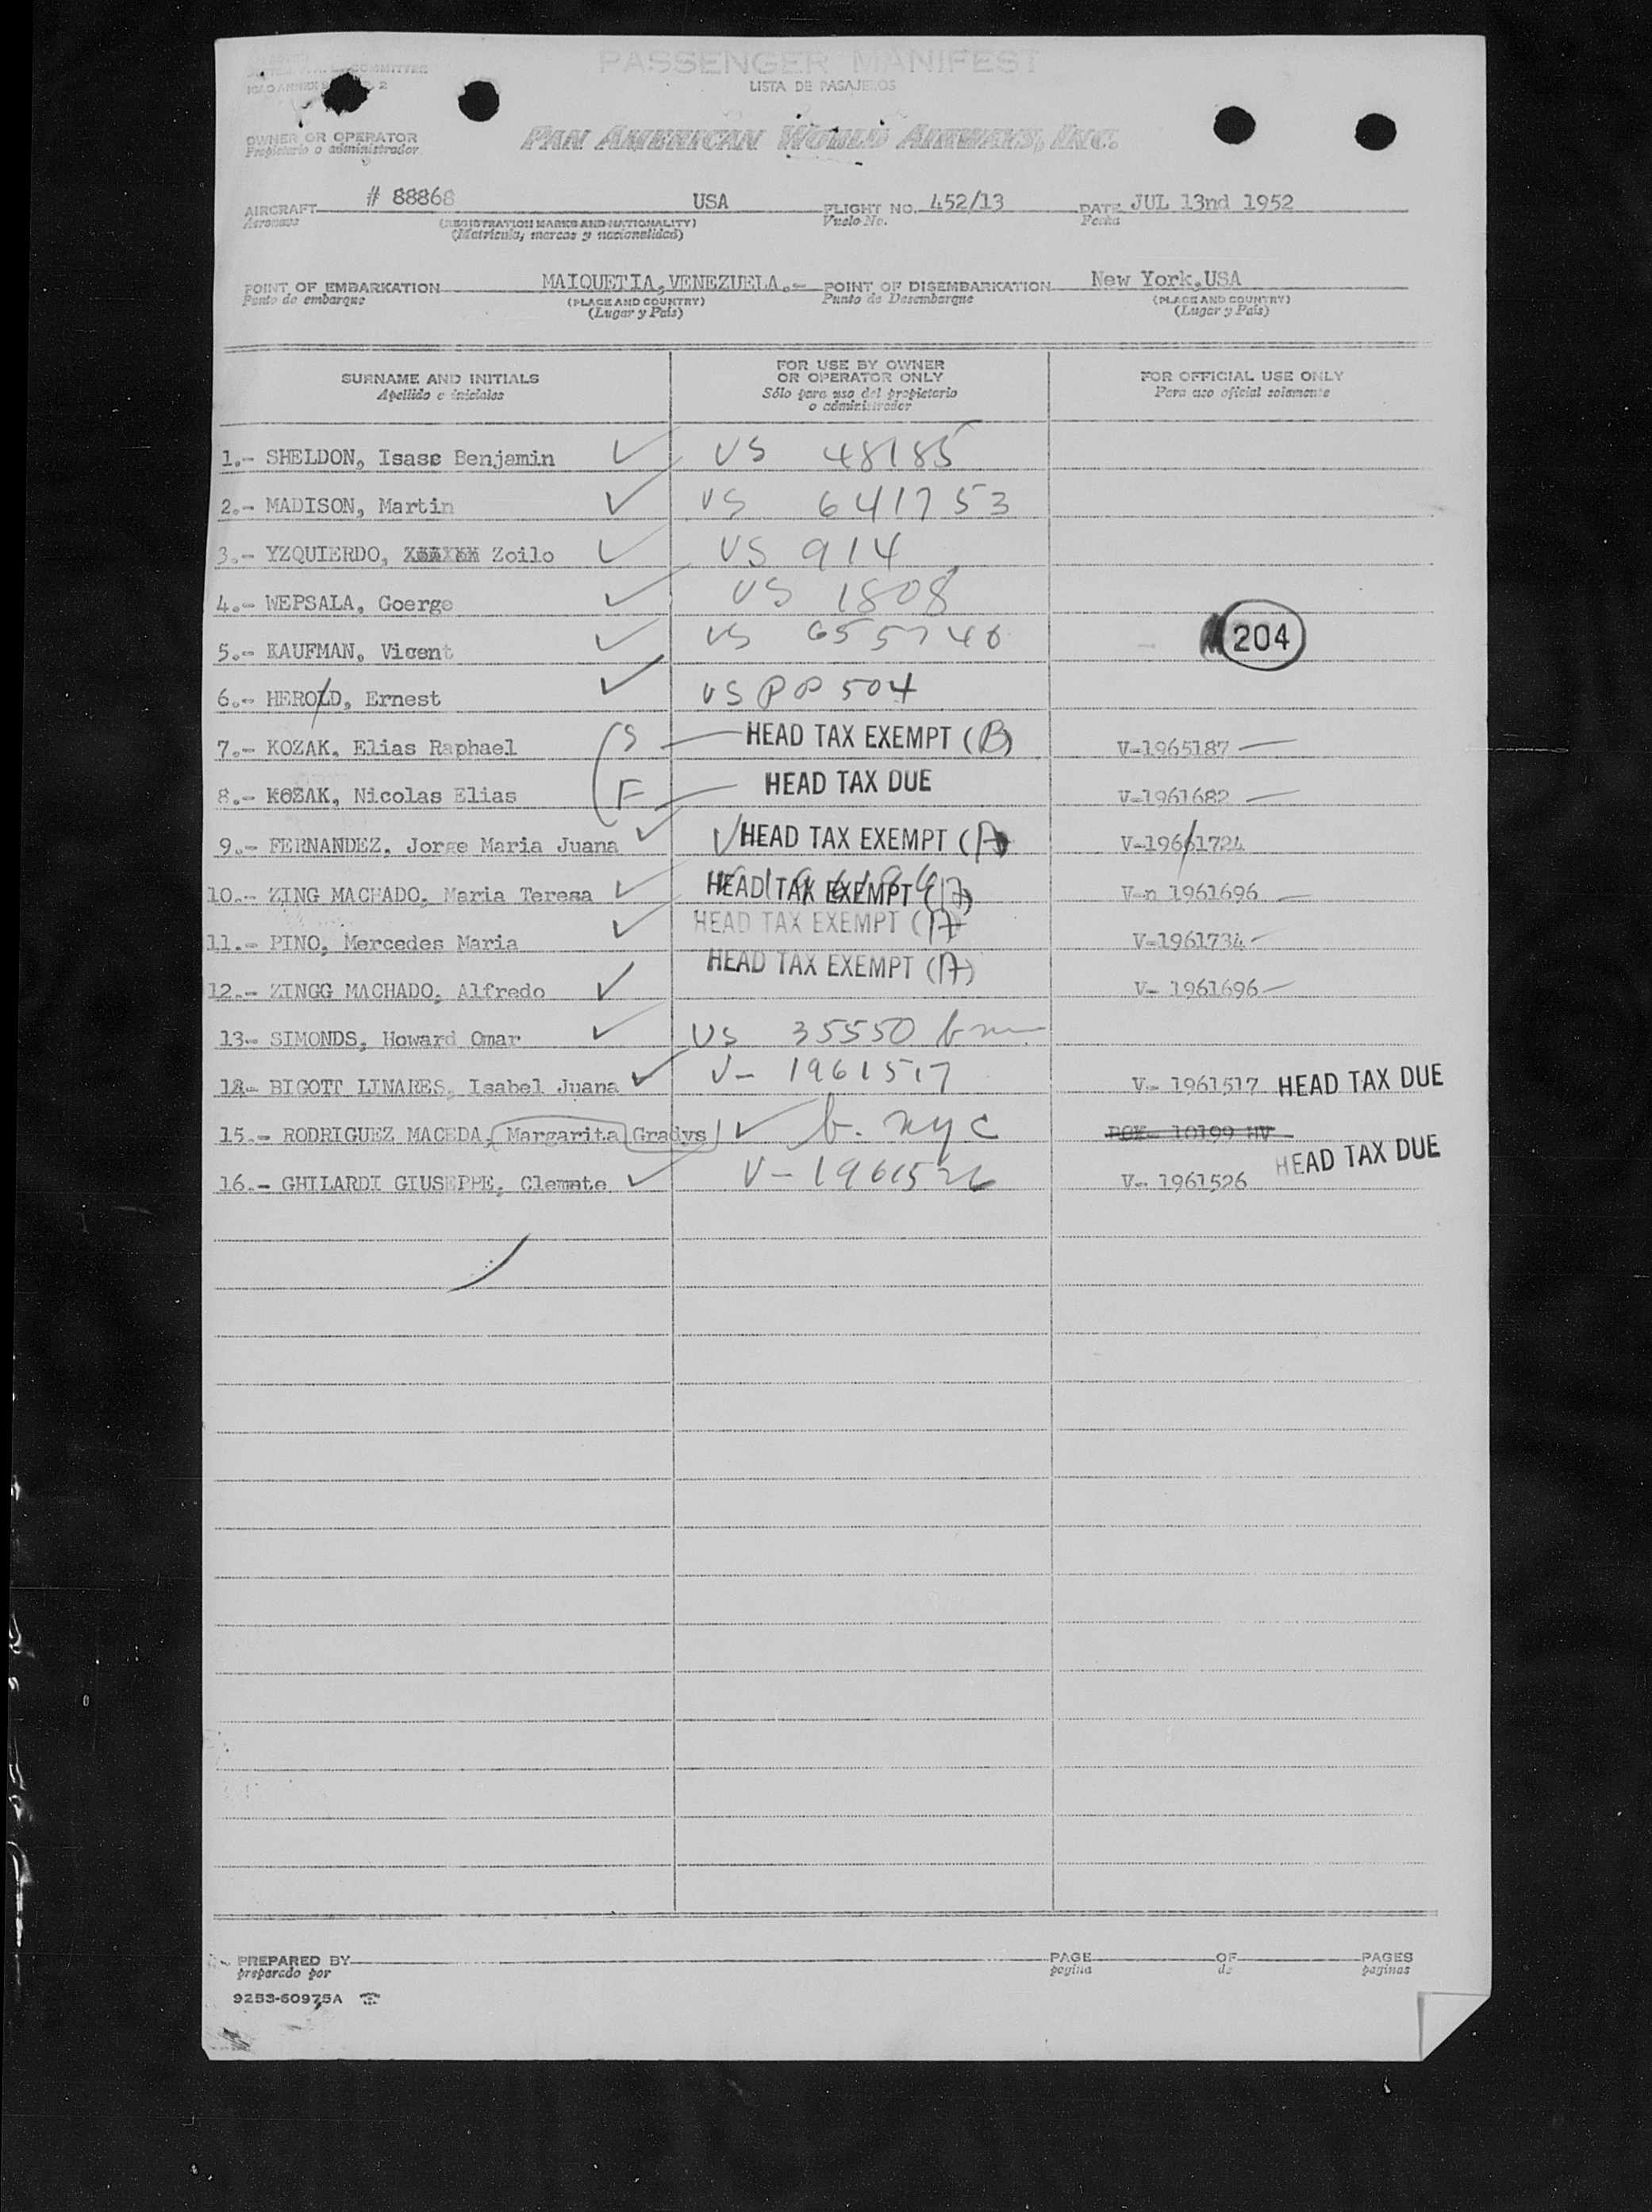 PASSENGER MANIFEST
LISTA DE PASAJEROS
COMMITTEE
ICAO ANNEX 2
OWNER OR OPERATOR
Propietario o administrador
PAN AMERICAN WORLD AIRWAYS, INC.
AIRCRAFT # 88868 USA FLIGHT NO. 452/13 DATE JUL 13nd 1952
Aeronave (REGISTRATION MARKS AND NATIONALITY) Vuelo No. Fecha
(Matricula, marcas y nacionalidad)
POINT OF EMBARKATION MAIQUETIA,VENEZUELA.- POINT OF DISEMBARKATION New York,USA
Punto de embarque (PLACE AND COUNTRY) Punto de Desembarque (PLACE AND COUNTRY)
(Lugar y País) (Lugar y País)
SURNAME AND INITIALS
Apellido e iniciales
FOR USE BY OWNER
OR OPERATOR ONLY
Sólo para uso del propietario
o administrador
FOR OFFICIAL USE ONLY
Para uso oficial solamente
1.- SHELDON, Isasc Benjamin US 48185
2.- MADISON, Martin US 641753
3.- YZQUIERDO, Zoilo US 914
4.- WEPSALA, Goerge US 1808
5.- KAUFMAN, Vicent US 655740 204
6.- HEROLD, Ernest US PP 504
7.- KOZAK, Elias Raphael S HEAD TAX EXEMPT (B) V-1965187
8.- KOZAK, Nicolas Elias F HEAD TAX DUE V-1961682
9.- FERNANDEZ, Jorge Maria Juana HEAD TAX EXEMPT (A) V-1961724
10.- ZING MACHADO, Maria Teresa HEAD TAX EXEMPT (A) V-n 1961696
11.- PINO, Mercedes Maria HEAD TAX EXEMPT (A) V-1961734
12.- ZINGG MACHADO, Alfredo HEAD TAX EXEMPT (A) V- 1961696
13- SIMONDS, Howard Omar US 35550
14- BIGOTT LINARES, Isabel Juana V- 1961517 V- 1961517 HEAD TAX DUE
15.- RODRIGUEZ MACEDA, Margarita Gradys b. nyc 10199 HV
16.- GHILARDI GIUSEPPE, Clemate V- 1961526 V- 1961526 HEAD TAX DUE
PREPARED BY PAGE OF PAGES
preparado por pagina de paginas
9253-60975A